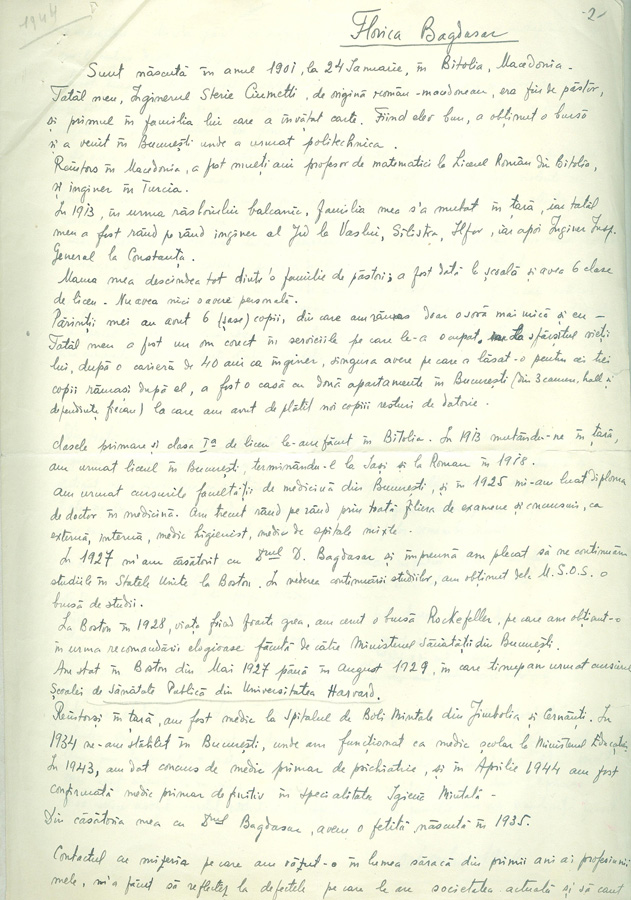 1944 I
-2-
Florica Bagdasar
Sunt născută în anul 1901, la 24 Ianuarie, în Bitolia, Macedonia.-
Tatăl meu, Inginerul Sterie Ciumetti, de origină român-macedonean, era fiu de păstor,
și primul în familia lui care a învățat carte. Fiind elev bun, a obținut o bursă
și a venit în București unde a urmat politechnica.
Reîntors în Macedonia, a fost mulți ani profesor de matematici la Liceul Român din Bitolia,
și inginer în Turcia.
In 1913, în urma răsboiului balcanic, familia mea s'a mutat în țară, iar tatăl
meu a fost rând pe rând inginer al Jud la Vaslui, Silistra, Ilfov, iar apoi Inginer Insp.
General la Constanța.
Mama mea descindea tot dintr'o familie de păstori; a fost dată la școală și avea 6 clase
de liceu. - Nu avea nici o avere personală.
Părinții mei au avut 6 (șase) copii, din care am rămas doar o soră mai mică și eu -
Tatăl meu a fost un om corect în serviciile pe care le-a ocupat, la sfârșitul vieții
lui, după o carieră de 40 ani ca inginer, singura avere pe care a lăsat-o pentru cei trei
copii rămași după el, a fost o casă cu două apartamente în București (din 3 camere, hall și
dependințe fiecare) la care am avut de plătit noi copiii resturi de datorie.
Clasele primare și clasa Iª de liceu le-am făcut în Bitolia. In 1913 mutându-ne în țară,
am urmat liceul în București, terminându-l la Iași și la Roman în 1918.
Am urmat cursurile facultății de medicină din București, și în 1925 mi-am luat diploma
de doctor în medicină. Am trecut rând pe rând prin toată filiera de examene și concursuri, ca
externă, internă, medic higienist, medic de spitale mixte.
In 1927 m'am căsătorit cu Drul D. Bagdasar și împreună am plecat să ne continuăm
studiile în Statele Unite la Boston. In vederea continuării studiilor, am obținut dela M.S.O.S. o
bursă de studii.
La Boston în 1928, viața fiind foarte grea, am cerut o bursă Rockefeller, pe care am obținut-o
în urma recomandării elogioase făcută de către Ministerul Sănătății din București.
Am stat în Boston din Mai 1927 până în August 1929, în care timp am urmat cursurile
Școalei de Sănătate Publică din Universitatea Harvard.
Reîntorși în țară, am fost medic la Spitalul de Boli Mintale din Jimbolia și Cernăuți. In
1934 ne-am stabilit în București, unde am funcționat ca medic școlar la Ministerul Educației
In 1943, am dat concurs de medic primar de psichiatrie, și în Aprilie 1944 am fost
confirmată medic primar definitiv în specialitatea Igienă Mintală -
Din căsătoria mea cu Drul Bagdasar, avem o fetiță, născută în 1935.
Contactul cu mizeria pe care am văzut-o în lumea săracă din primii ani ai profesiunii
mele, m'a făcut să reflectez la defectele pe care le are societatea actuală și să caut